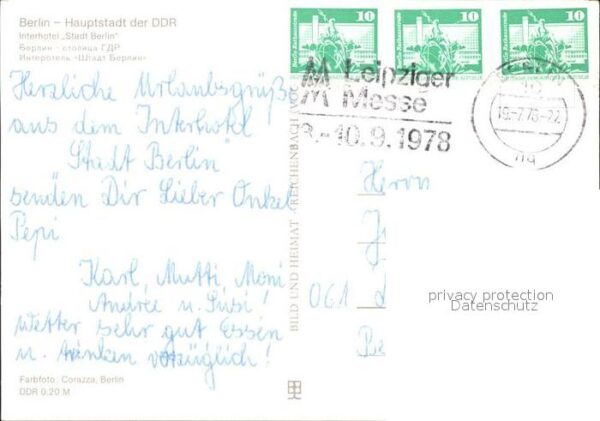 Berlin – Hauptstadt der DDR
Interhotel „Stadt Berlin"
Берлин – столица ГДР
Интеротель «Штадт Берлин»
Herzliche Urlaubsgrüße
aus dem Interhotel
"Stadt Berlin"
senden Dir Lieber Onkel
Pepi
Karl, Mutti, Moni
Andree u. Susi!
Wetter sehr gut Essen
u. trinken vorzüglich!
Farbfoto: Corazza, Berlin
DDR 0,20 M
BILD UND HEIMAT REICHENBACH
10 10 10
MM Leipziger
Messe
3.–10.9.1978
19.-7.78-22
Herrn
061
privacy protection
Datenschutz